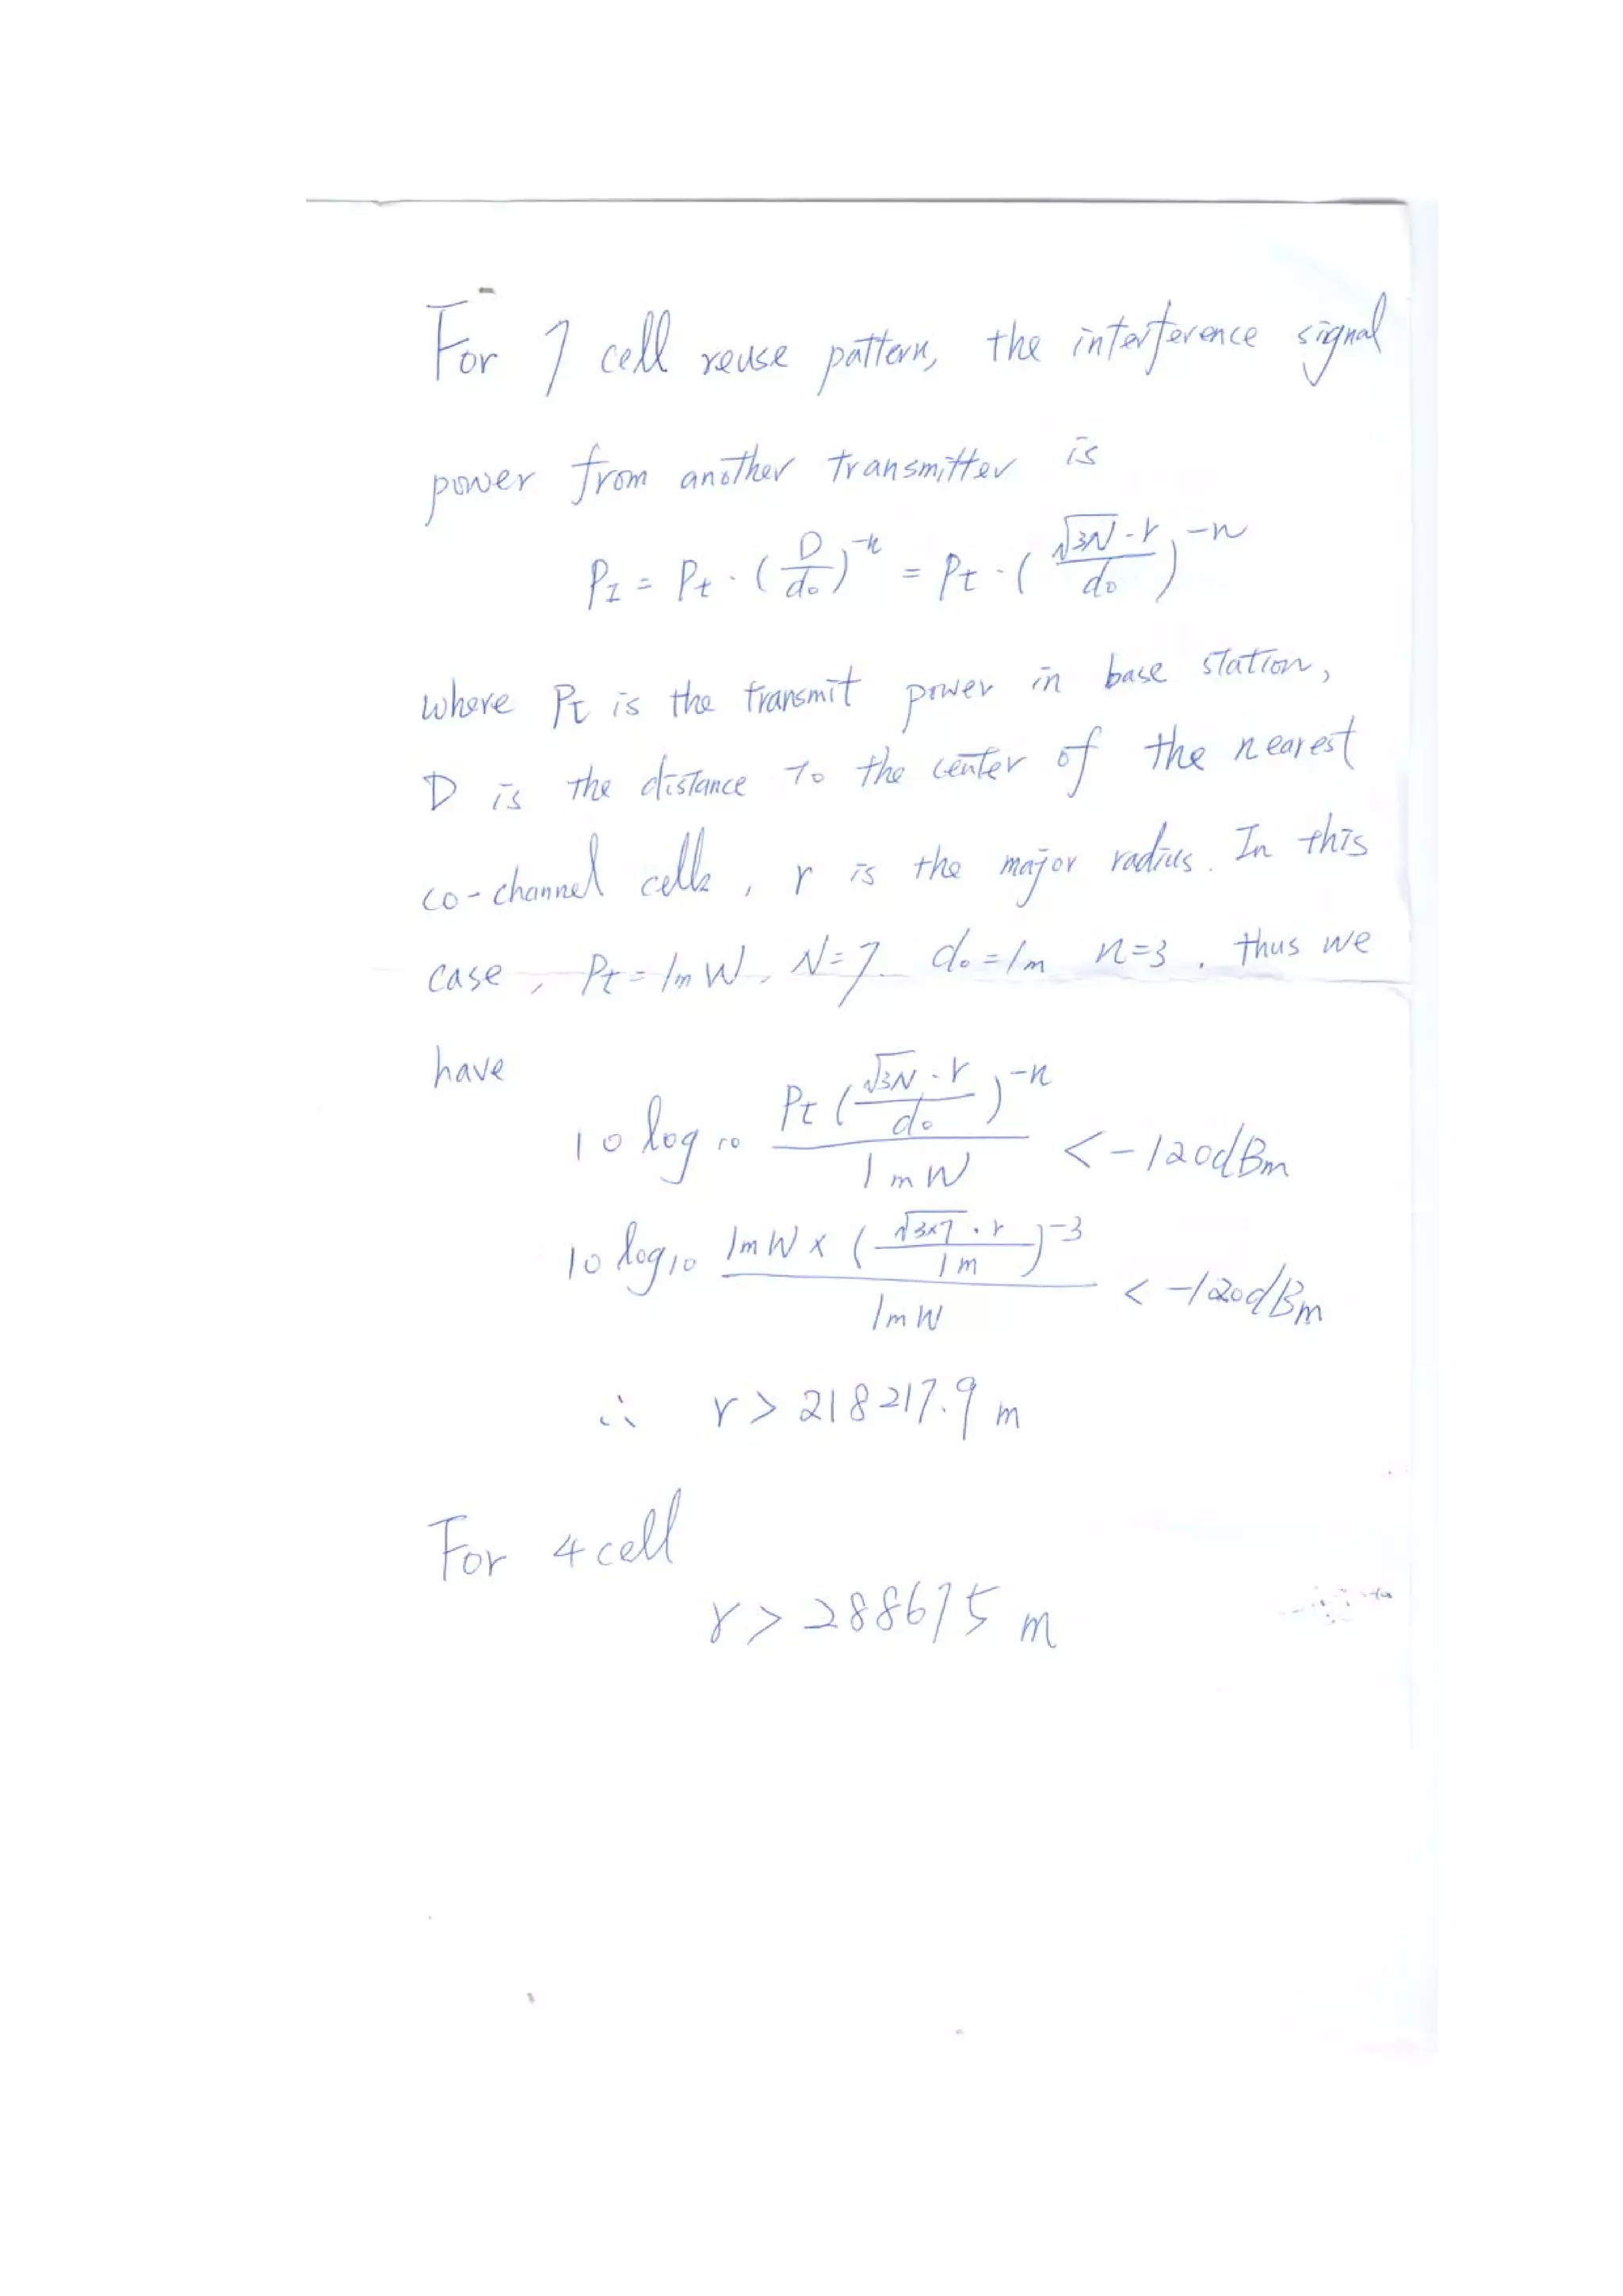 For 7 cell reuse pattern, the interference signal
power from another transmitter is
P_I = Pt · (D/d₀)^-n = Pt · (√3N · r / d₀)^-n
where Pt is the transmit power in base station,
D is the distance to the center of the nearest
co-channel cells, r is the major radius. In this
case, Pt = 1mW, N=7. d₀=1m n=3, thus we
have
10 log₁₀ Pt (√3N · r / d₀)^-n / 1mW < -120dBm
10 log₁₀ 1mW × (√3×7 · r / 1m)^-3 / 1mW < -120dBm
∴ r > 218217.9 m
For 4 cell
r > 288675 m